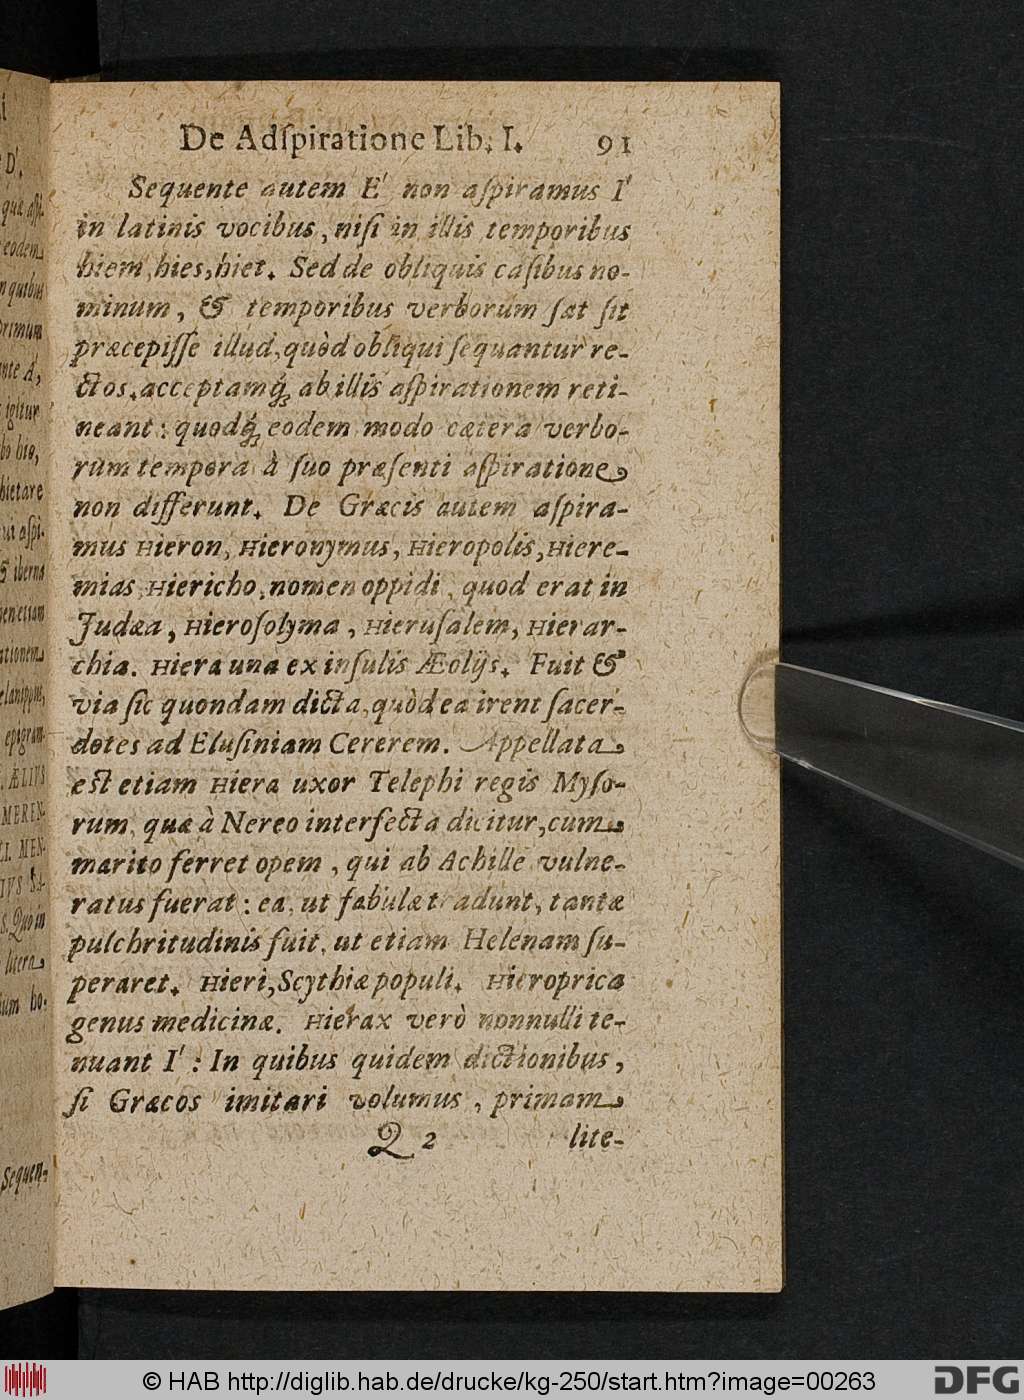 De Adſpiratione Lib. I. 91
Sequente autem E' non aſpiramus I'
in latinis vocibus, niſi in illis temporibus
hiem, hies, hiet. Sed de obliquis caſibus no-
minum, & temporibus verborum ſat ſit
præcepiſſe illud, quòd obliqui ſequantur re-
ctos, acceptamq́; ab illis aſpirationem reti-
neant: quodq́; eodem modo cætera verbo-
rum tempora à ſuo præſenti aſpiratione
non differunt. De Græcis autem aſpira-
mus Hieron, Hieronymus, Hieropolis, Hiere-
mias, Hiericho, nomen oppidi, quod erat in
Judæa, Hieroſolyma, Hieruſalem, Hierar-
chia. Hiera una ex inſulis Æolijs. Fuit &
via ſic quondam dicta, quòd ea irent ſacer-
dotes ad Eluſiniam Cererem. Appellata
est etiam Hiera uxor Telephi regis Myſo-
rum, quæ à Nereo interfecta dicitur, cum
marito ferret opem, qui ab Achille vulne-
ratus fuerat: ea, ut fabulæ tradunt, tantæ
pulchritudinis fuit, ut etiam Helenam ſu-
peraret. Hieri, Scythiæ populi. Hieroprica
genus medicinæ. Hierax verò nonnulli te-
nuant I': In quibus quidem dictionibus,
ſi Græcos imitari volumus, primam
Q 2 lite-
Sequen-
© HAB http://diglib.hab.de/drucke/kg-250/start.htm?image=00263
DFG